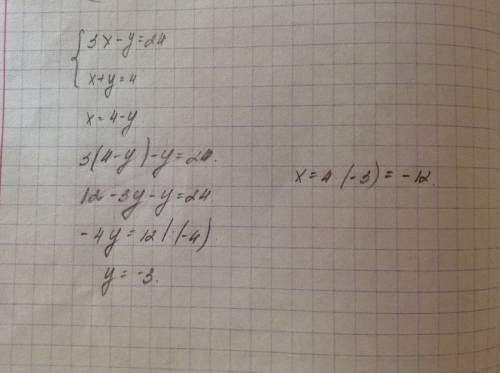 { 3x-y=24
x+y=4
x=4-y
3(4-y)-y=24.
12-3y-y=24
-4y=12 |:(-4)
y=-3.
x=4·(-3)=-12.